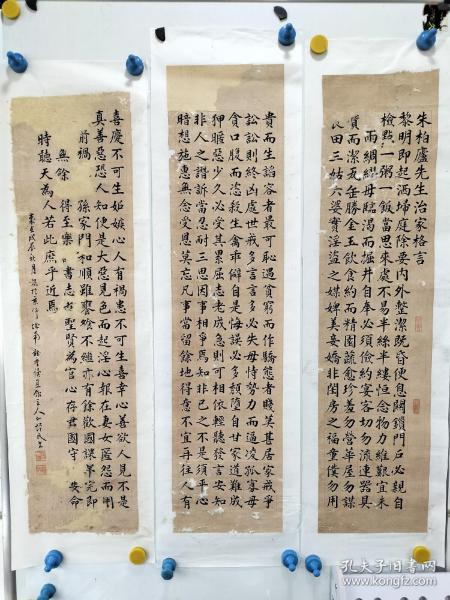 朱柏廬先生治家格言
黎明即起洒埽庭除要内外整潔既昏便息關鎖門戶必親自
檢點一粥一飯當思來處不易半絲半縷恒念物力維艱宜未
雨綢繆毋臨渴而掘井自奉必須儉約宴客切勿流連器具
質而潔瓦缶勝金玉飲食約而精園蔬愈珍羞勿營華屋勿謀
良田三姑六婆實淫盜之媒婢美妾嬌非閨房之福童僕勿用
貴而生諂容者最可恥遇貧窮而作驕態者賤莫甚居家戒爭
訟訟則終凶處世戒多言言多必失毋恃勢力而逼凌孤寡毋
貪口腹而恣殺生禽乖僻自是悔誤必多頹墮自甘家道難成
狎暱惡少久必受其累屈志老成急則可相依輕聽發言安知
非人之譖訴當忍耐三思因事相爭焉知非己之不是須平心
暗想施惠無念受恩莫忘凡事當留餘地得意不宜再往人有
喜慶不可生妒嫉心人有禍患不可生喜幸心善欲人見不是
真善惡恐人知便是大惡見色而起淫心報在妻女匿怨而用
前禍 孫家門和順雖饔飧不繼亦有餘歡國課早完即
無餘 得至樂 書志在聖賢為官心存君國守 安命
時聽天為人若此庶乎近焉
孔夫子旧书网
www.kongfz.com